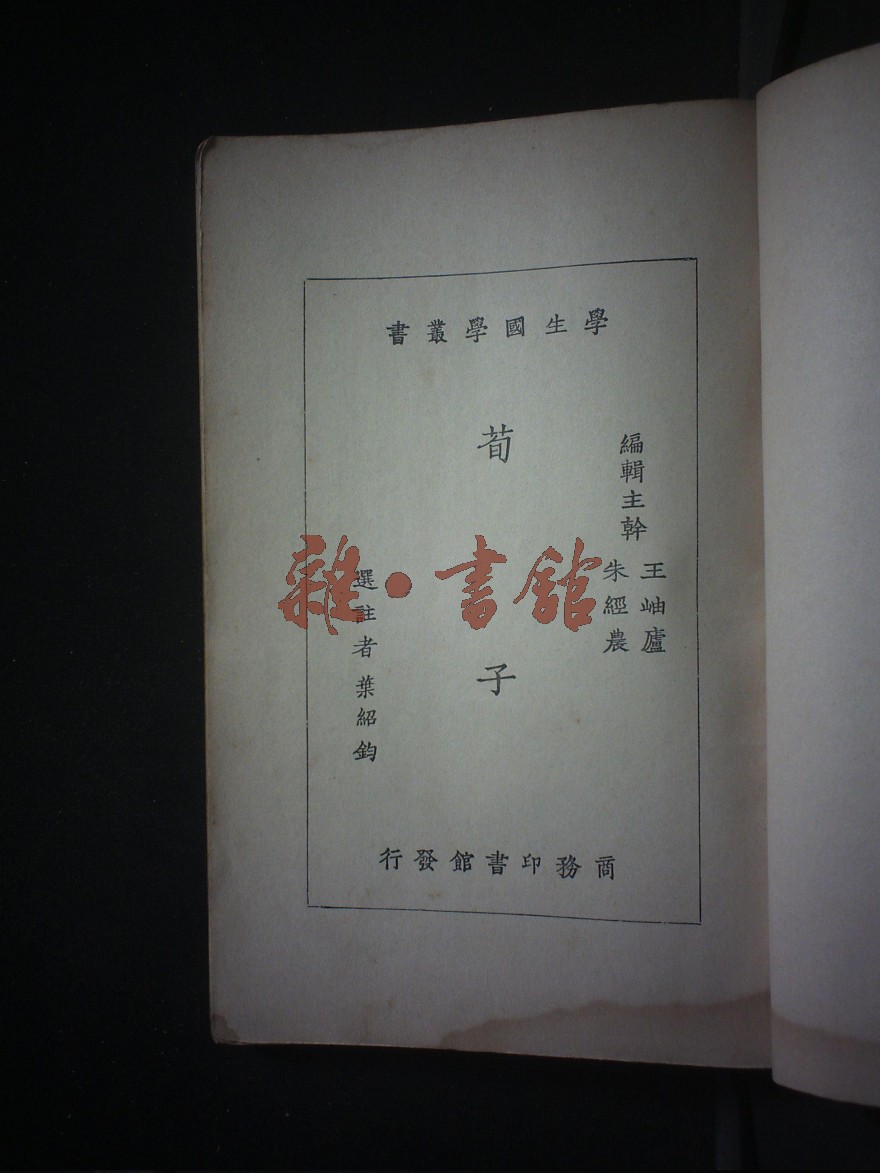 學生國學叢書
編輯主幹
王岫廬
朱經農
荀子
選註者 葉紹鈞
商務印書館發行
雜·書館